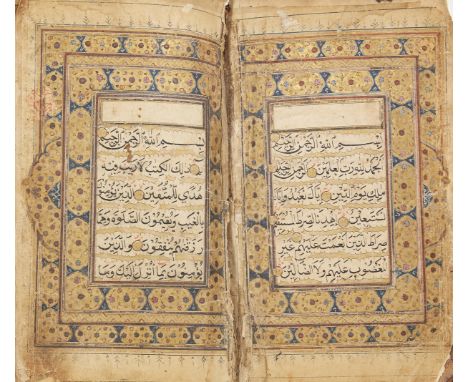 بسم الله الرحمن الرحيم
الحمد لله رب العلمين
ملك يوم الدين اياك نعبد واياك
نستعين اهدنا الصراط المستقيم
صراط الذين انعمت عليهم غير
المغضوب عليهم ولا الضالين
بسم الله الرحمن الرحيم
ذلك الكتب لا ريب فيه
هدى للمتقين الذين يؤمنون
بالغيب ويقيمون الصلوة ومما
رزقنهم ينفقون والذين
يؤمنون بما انزل اليك وما